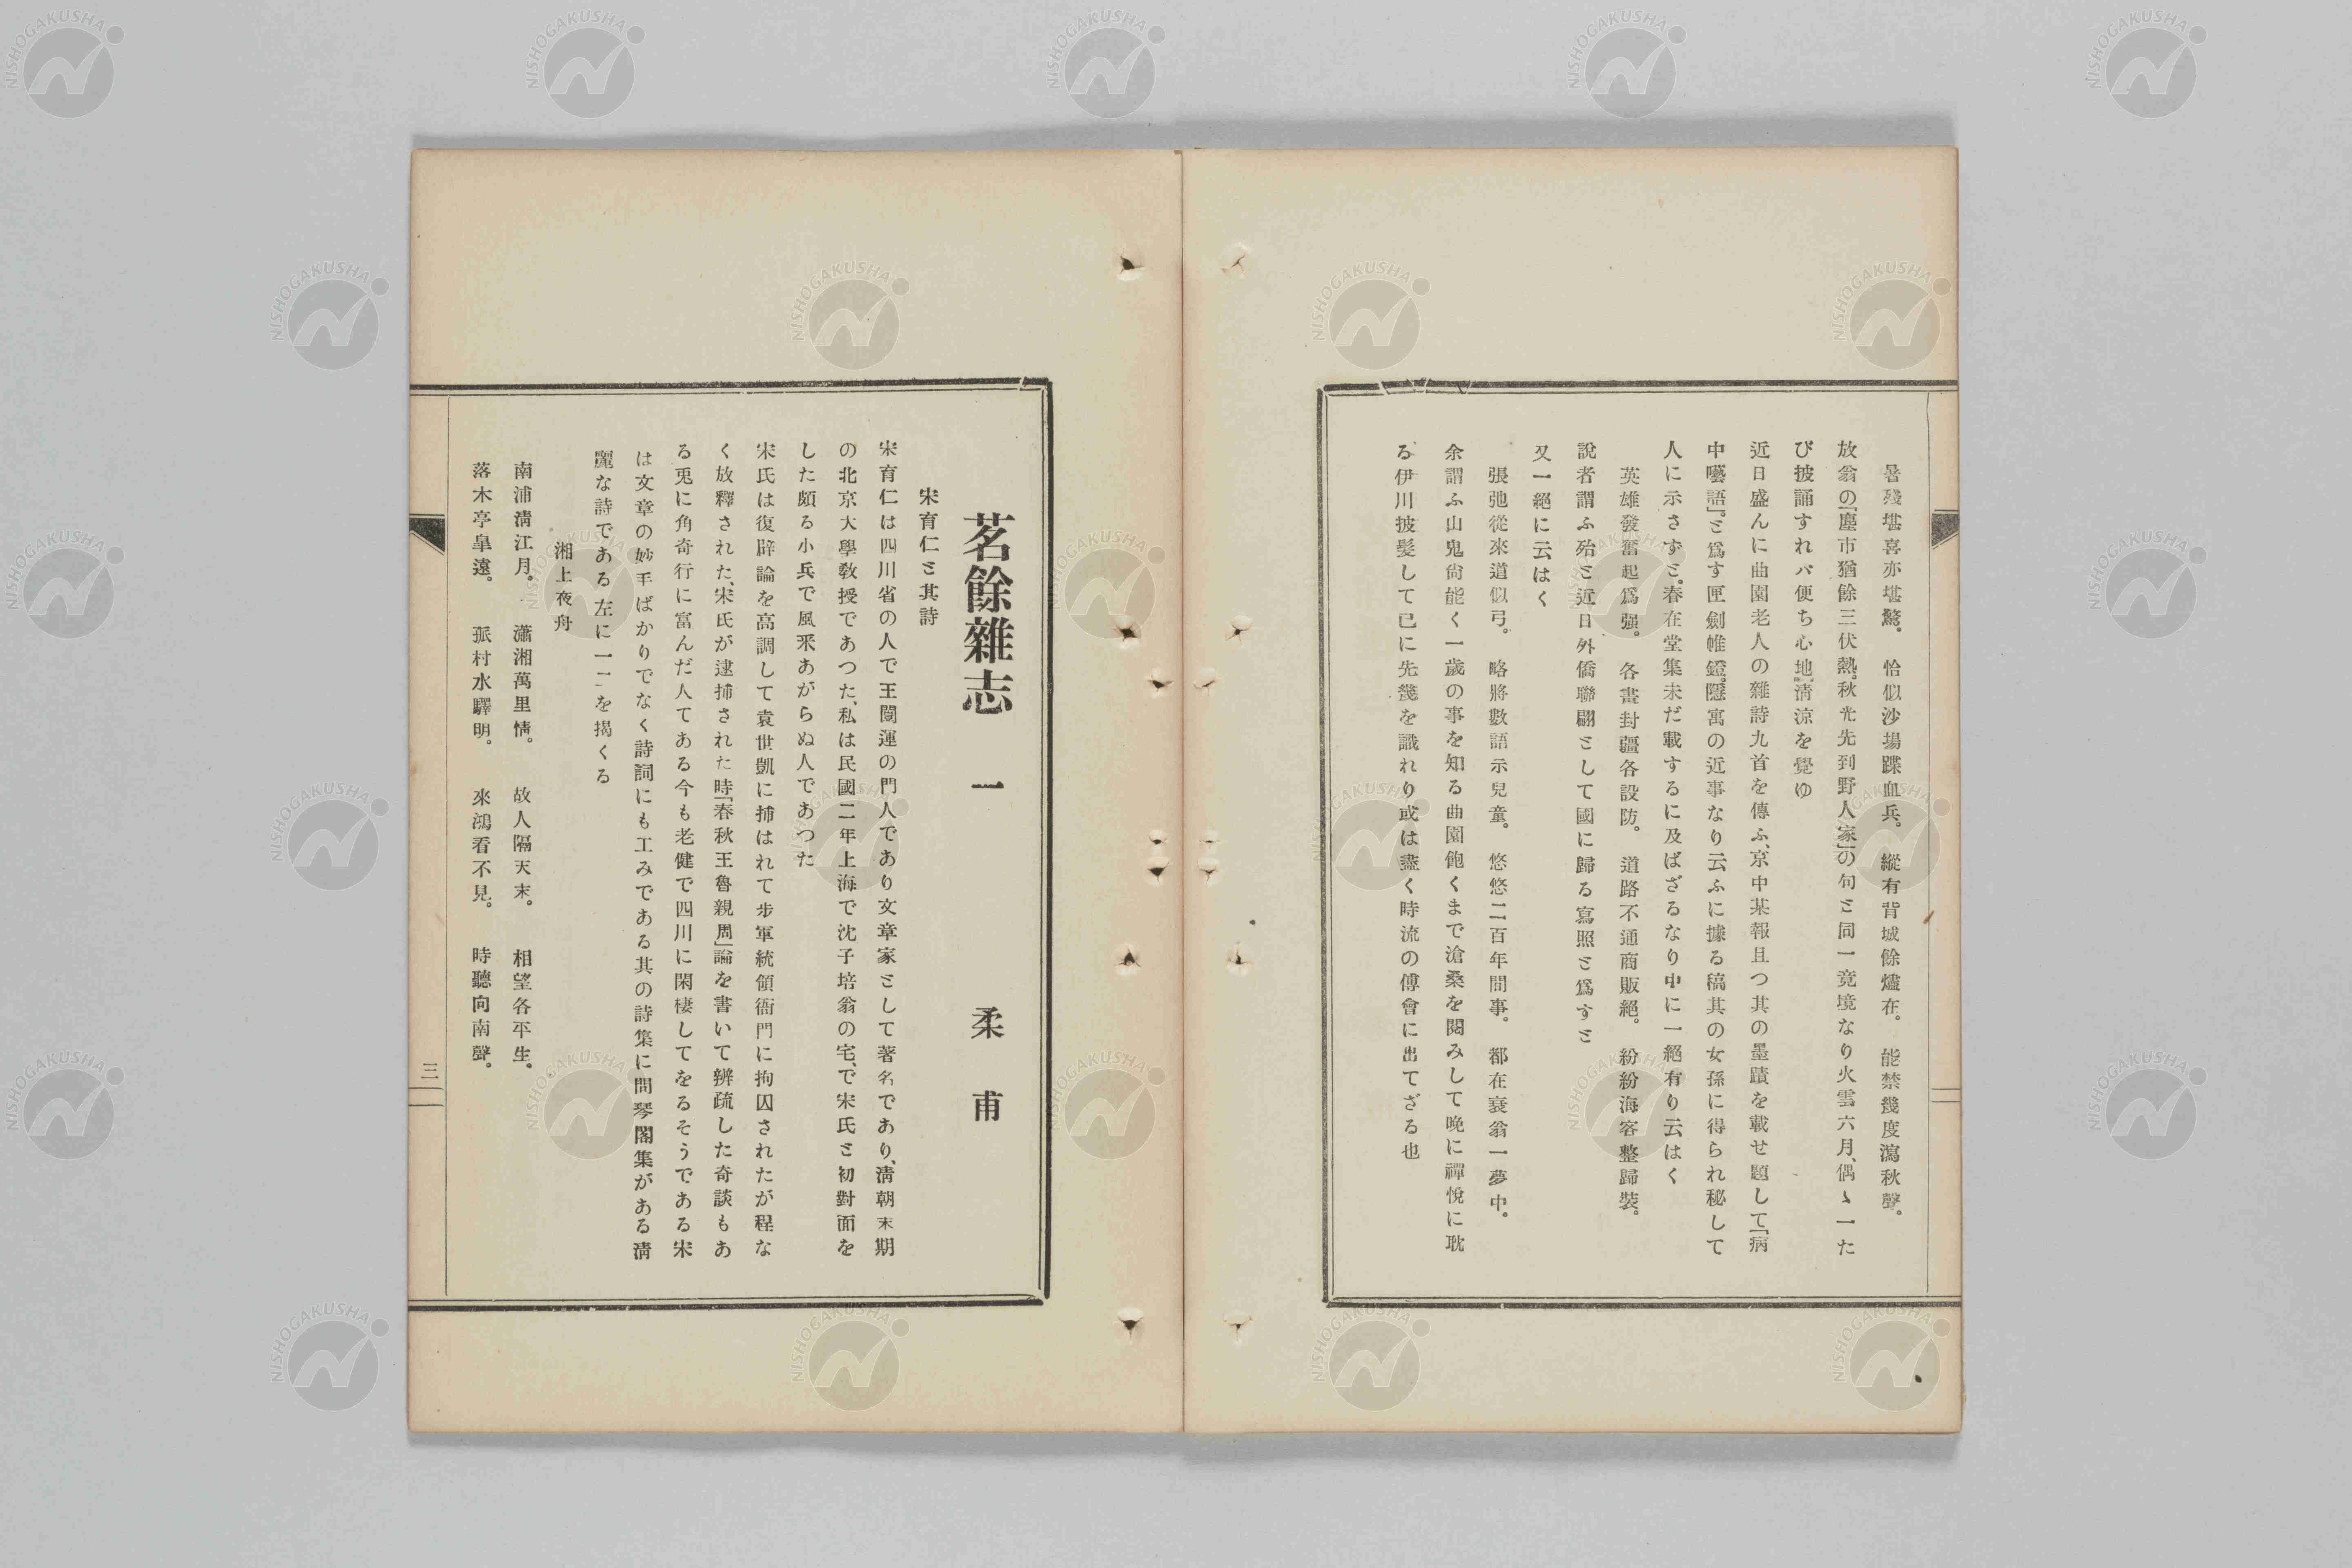 暑殘堪喜亦堪驚。恰似沙場蹀血兵。縱有背城餘燼在。能禁幾度瀉秋聲。
放翁の「塵市猶餘三伏熱。秋光先到野人家」の句と同一竟境なり火雲六月、偶〻一た
び披誦すれバ便ち心地清涼を覺ゆ
近日盛んに曲園老人の雜詩九首を傳ふ、京中某報且つ其の墨蹟を載せ題して「病
中囈語」。と爲す匣劍帷鐙。隱寓の近事なり云ふに據る稿其の女孫に得られ秘して
人に示さずと。春在堂集未だ載するに及ばざるなり中に一絕有り云はく
英雄發奮起爲强。各畫封疆各設防。道路不通商販絕。紛紛海客整歸裝。
說者謂ふ殆と近日外僑聯翩として國に歸る寫照と爲すと
又一絕に云はく
張弛從來道似弓。略將數語示兒童。悠悠二百年間事。都在衰翁一夢中。
余謂ふ山鬼尙能く一歲の事を知る曲園飽くまで滄桑を閱みして晚に禪悅に耽
る伊川披髮して已に先幾を識れり或は盡く時流の傅會に出てざる也
茗餘雜志 一 柔甫
宋育仁と其詩
宋育仁は四川省の人で王闓運の門人であり文章家として著名であり、淸朝末期
の北京大學敎授であつた、私は民國二年上海で沈子培翁の宅、で宋氏と初對面を
した頗る小兵で風采あがらぬ人であつた
宋氏は復辟論を高調して袁世凱に捕はれて步軍統領衙門に拘囚されたが程な
く放釋された、宋氏が逮捕された時「春秋王魯親周」論を書いて辨疏した奇談もあ
る兎に角奇行に富んだ人てある今も老健で四川に閑棲してをるそうである宋
は文章の妙手ばかりでなく詩詞にも工みである其の詩集に問琴閣集がある淸
麗な詩である左に一二を揭くる
湘上夜舟
南浦淸江月。瀟湘萬里情。故人隔天末。相望各平生。
落木亭皐遠。孤村水驛明。來鴻看不見。時聽向南聲。
三
NISHOGAKUSHA